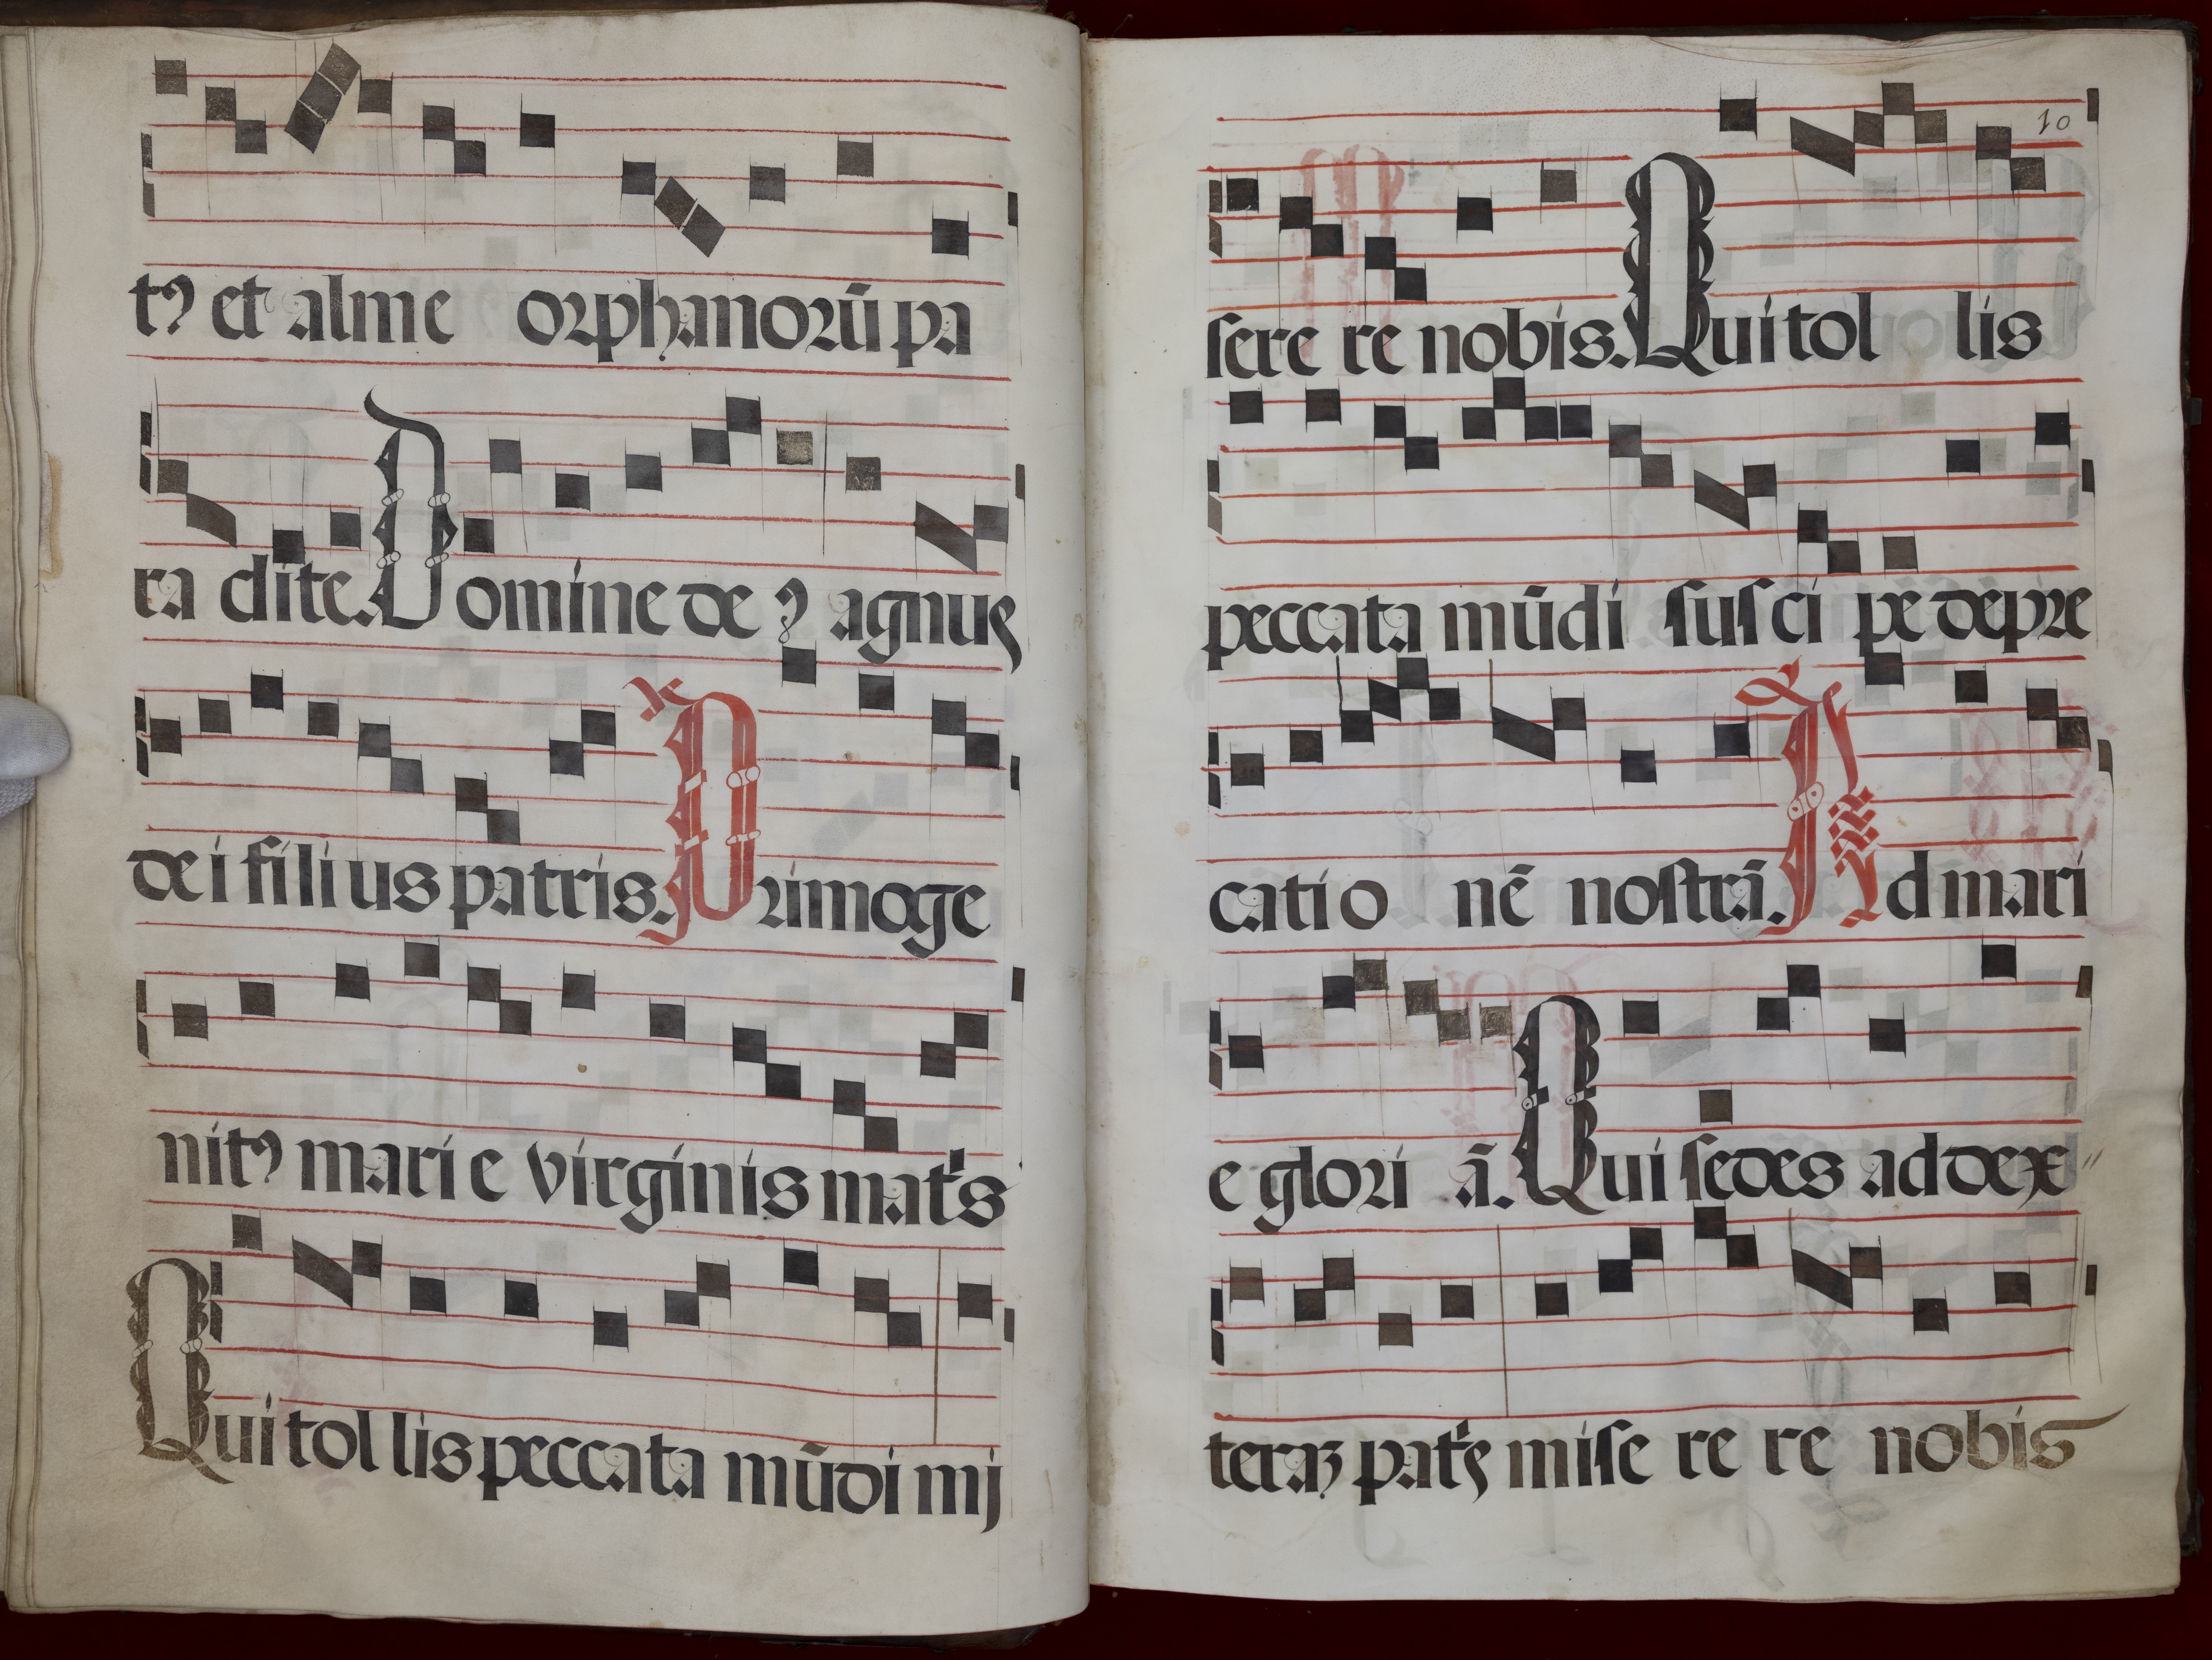 tꝰ et alme orphanorū pa
ra clite. Domine de ꝰ agnus
de i fili us patris. Primoge
nitꝰ mari e virginis mat̉s
Qui tol lis peccata mūdi mi
10
sere re nobis. Qui tol lis
peccata mūdi sus ci pe depre
catio nē nostrā. Ad mari
e glori ā. Qui sedes ad dex
teraꝫ pat̉s mise re re nobis